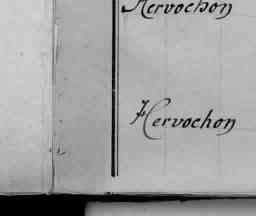 Hervochon
Hervochon